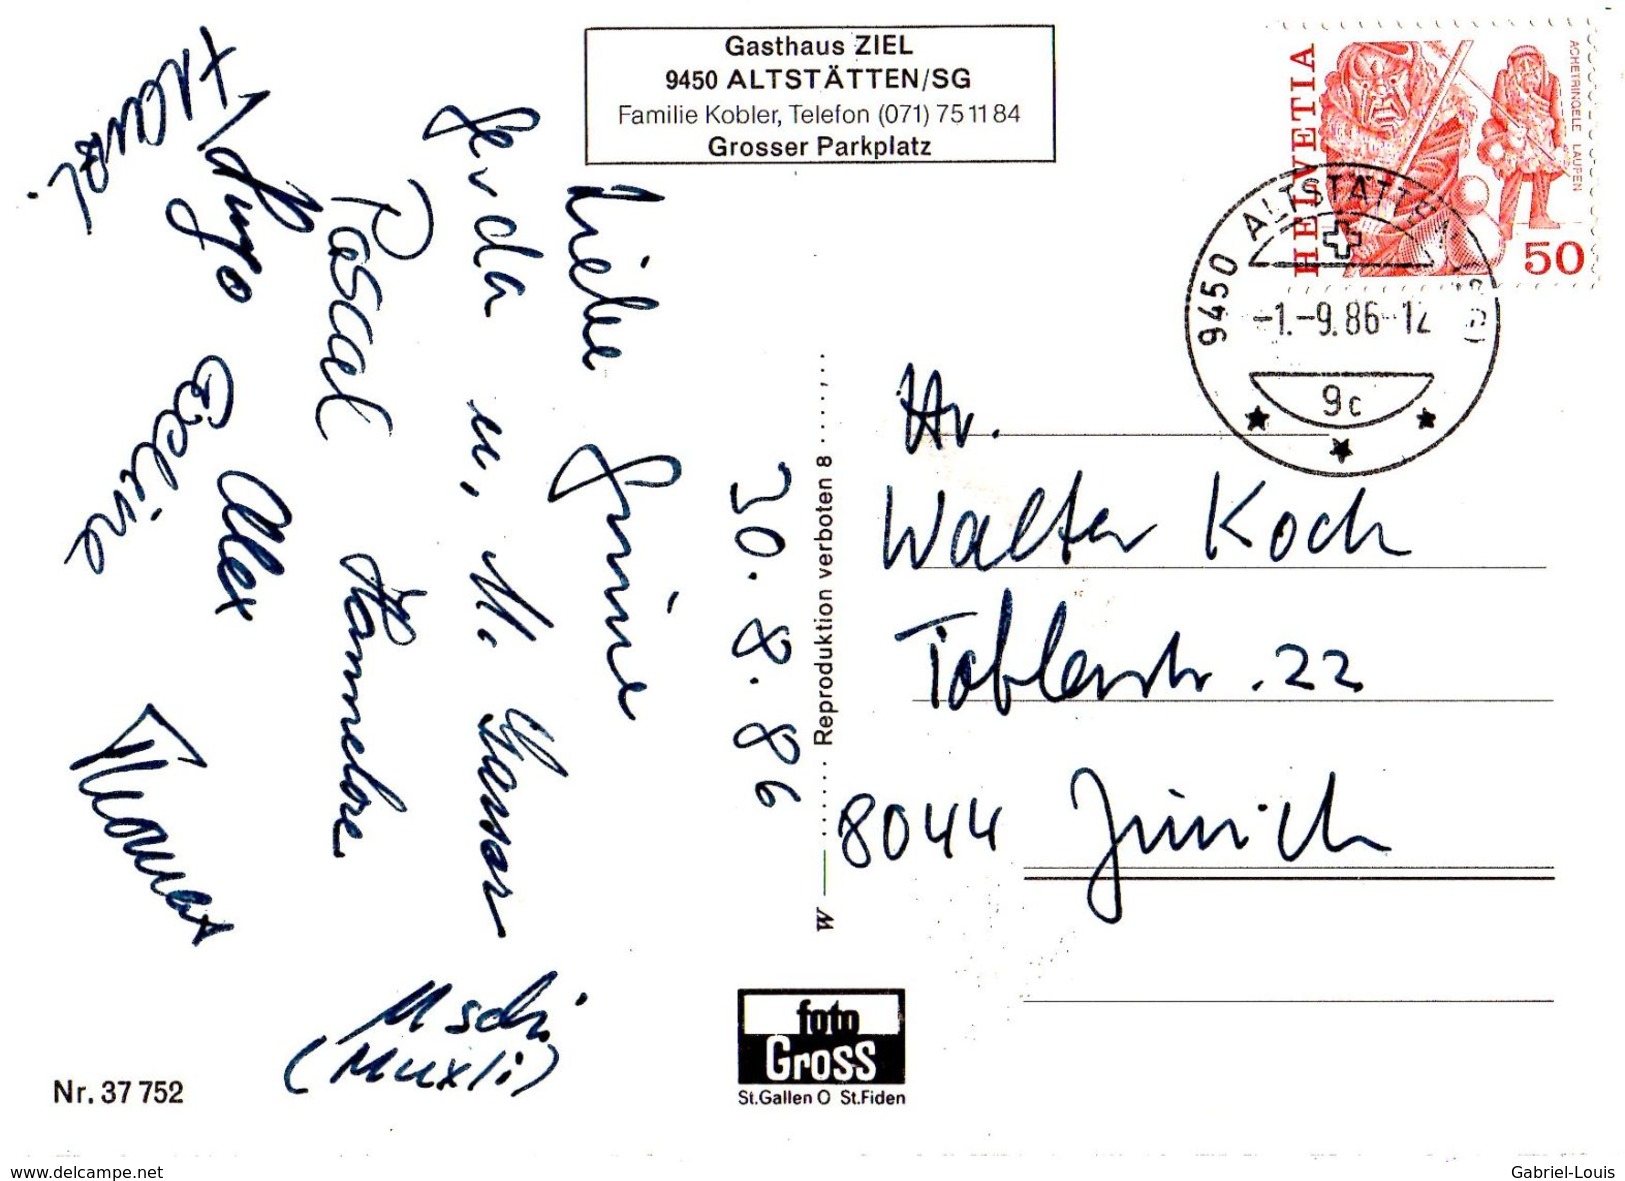 Gasthaus ZIEL
9450 ALTSTÄTTEN/SG
Familie Kobler, Telefon (071) 75 11 84
Grosser Parkplatz
HELVETIA
ACHETRINGELE LAUPEN
50
9450 ALTSTÄTTEN
-1.-9.86-12
9c
30.8.86
Liebe Grüsse
u. M.
Pascal Hannelore
Hugo Alex
Eveline
Thomas
Uschi
(Muxli)
Hr.
Walter Koch
Toblerstr. 22
8044 Zürich
W Reproduktion verboten 8
foto
Gross
St.Gallen O St.Fiden
Nr. 37 752
www.delcampe.net
Gabriel-Louis